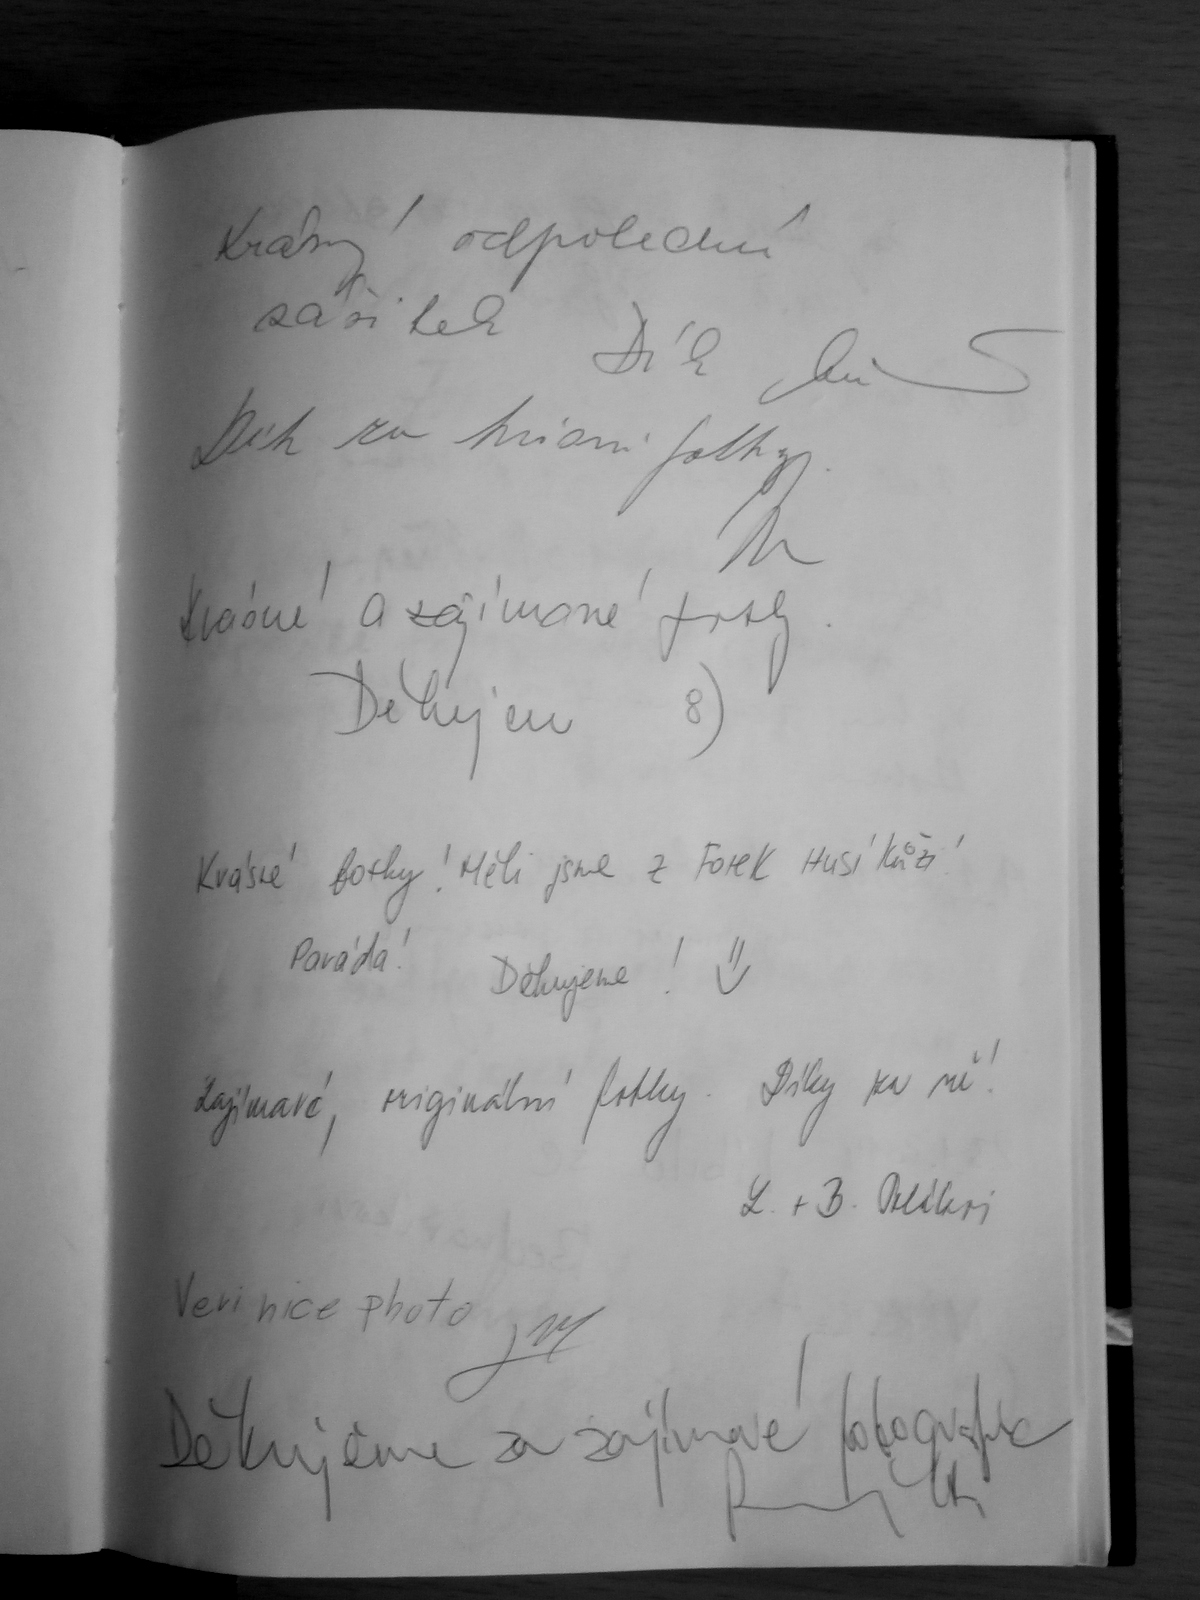 Krásný odpolední
zážitek Dík
Dík za krásné fotky.
Krásné a zajímavé fotky.
Děkujem 8)
Krásné fotky! Měli jsme z Fotek Husí kůži!
Paráda! Děkujeme!
Zajímavé, originální fotky. Díky za ně!
L. + B.
Veri nice photo
Děkujeme za zajímavé fotografie